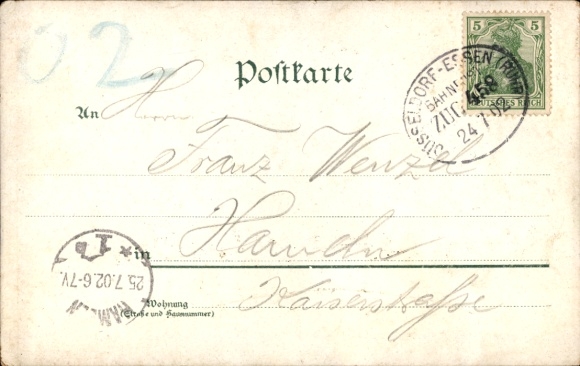 02
5 5
DEUTSCHES REICH
DÜSSELDORF-ESSEN (RUHR)
BAHNPOST
ZUG 458
24 7 02
Postkarte
An Herrn
Franz Wenzel
in Hameln
Kaiserstraße
Wohnung
(Straße und Hausnummer)
HAMELN
25.7.02.6-7V.
* 1b *